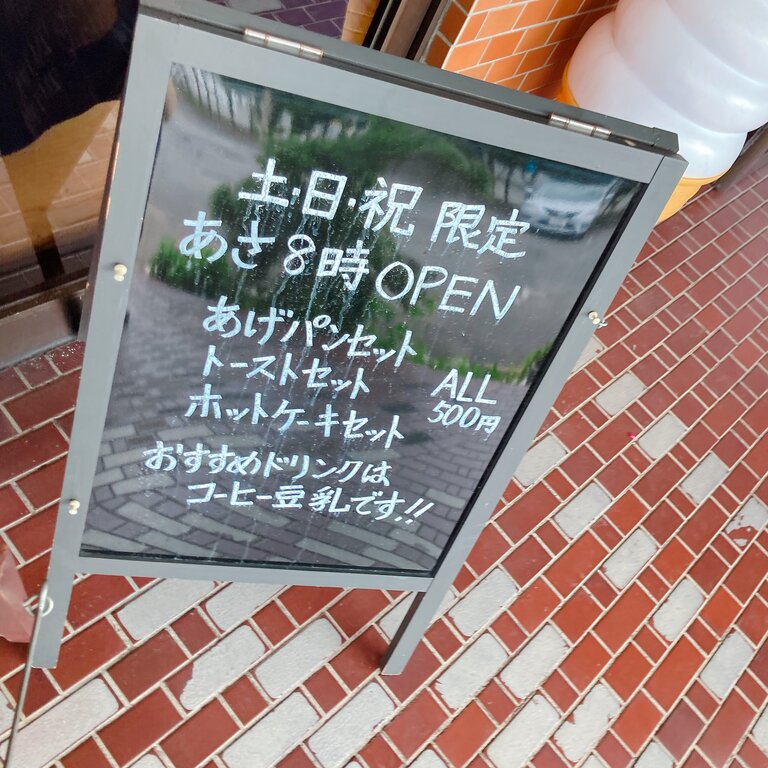 土・日・祝 限定
あさ8時OPEN
あげパンセット
トーストセット
ホットケーキセット
ALL
500円
おすすめドリンクは
コーヒー豆乳です!!